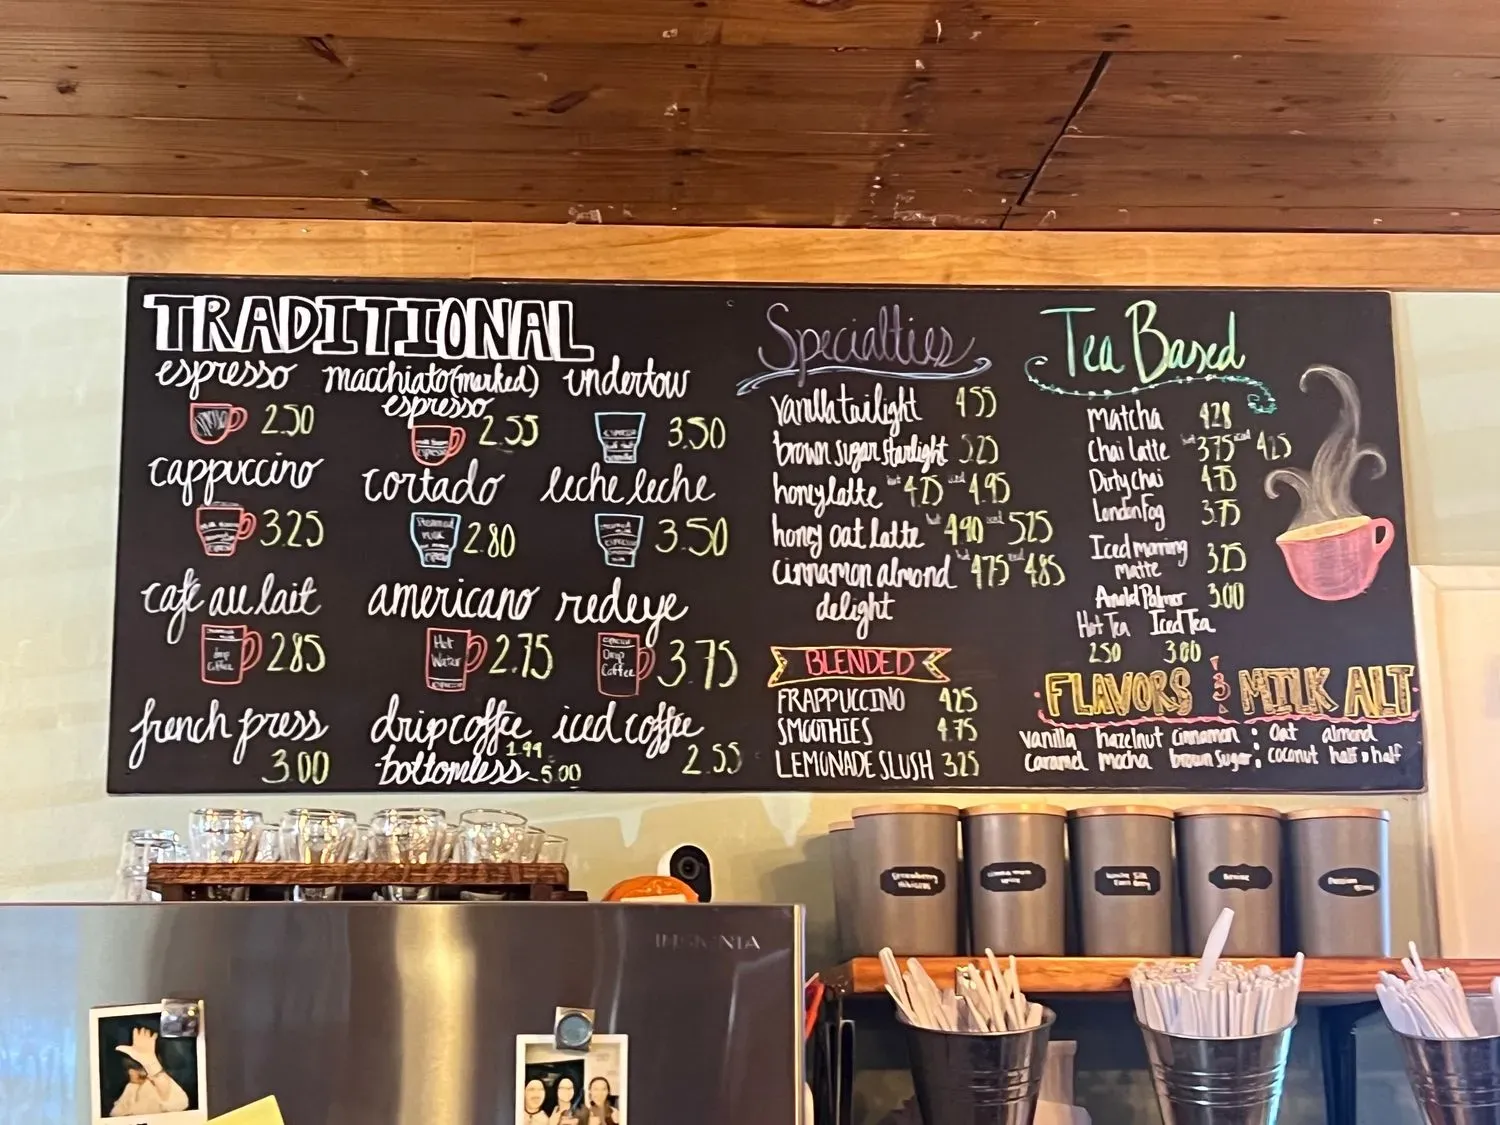 TRADITIONAL
espresso 2.50
macchiato (marked)
espresso 2.55
undertow 3.50
cappuccino 3.25
cortado 2.80
leche leche 3.50
café au lait 2.85
americano 2.75
redeye 3.75
french press 3.00
drip coffee 1.99
bottomless 5.00
iced coffee 2.55
Hot
Water
Drip
Coffee
drip
Coffee
Steamed
milk
Specialties
vanilla twilight 4.55
brown sugar starlight 5.25
honey latte hot 4.75 iced 4.95
honey oat latte hot 4.90 iced 5.25
cinnamon almond hot 4.75 iced 4.85
delight
BLENDED
FRAPPUCCINO 4.25
SMOOTHIES 4.75
LEMONADE SLUSH 3.25
Tea Based
Matcha 4.28
Chai Latte hot 3.75 iced 4.25
Dirty chai 4.75
London Fog 3.75
Iced morning
matte 3.25
Arnold Palmer 3.00
Hot Tea Iced Tea
2.50 3.00
FLAVORS & MILK ALT
vanilla hazelnut cinnamon : oat almond
caramel mocha brown sugar : coconut half & half
INSIGNIA